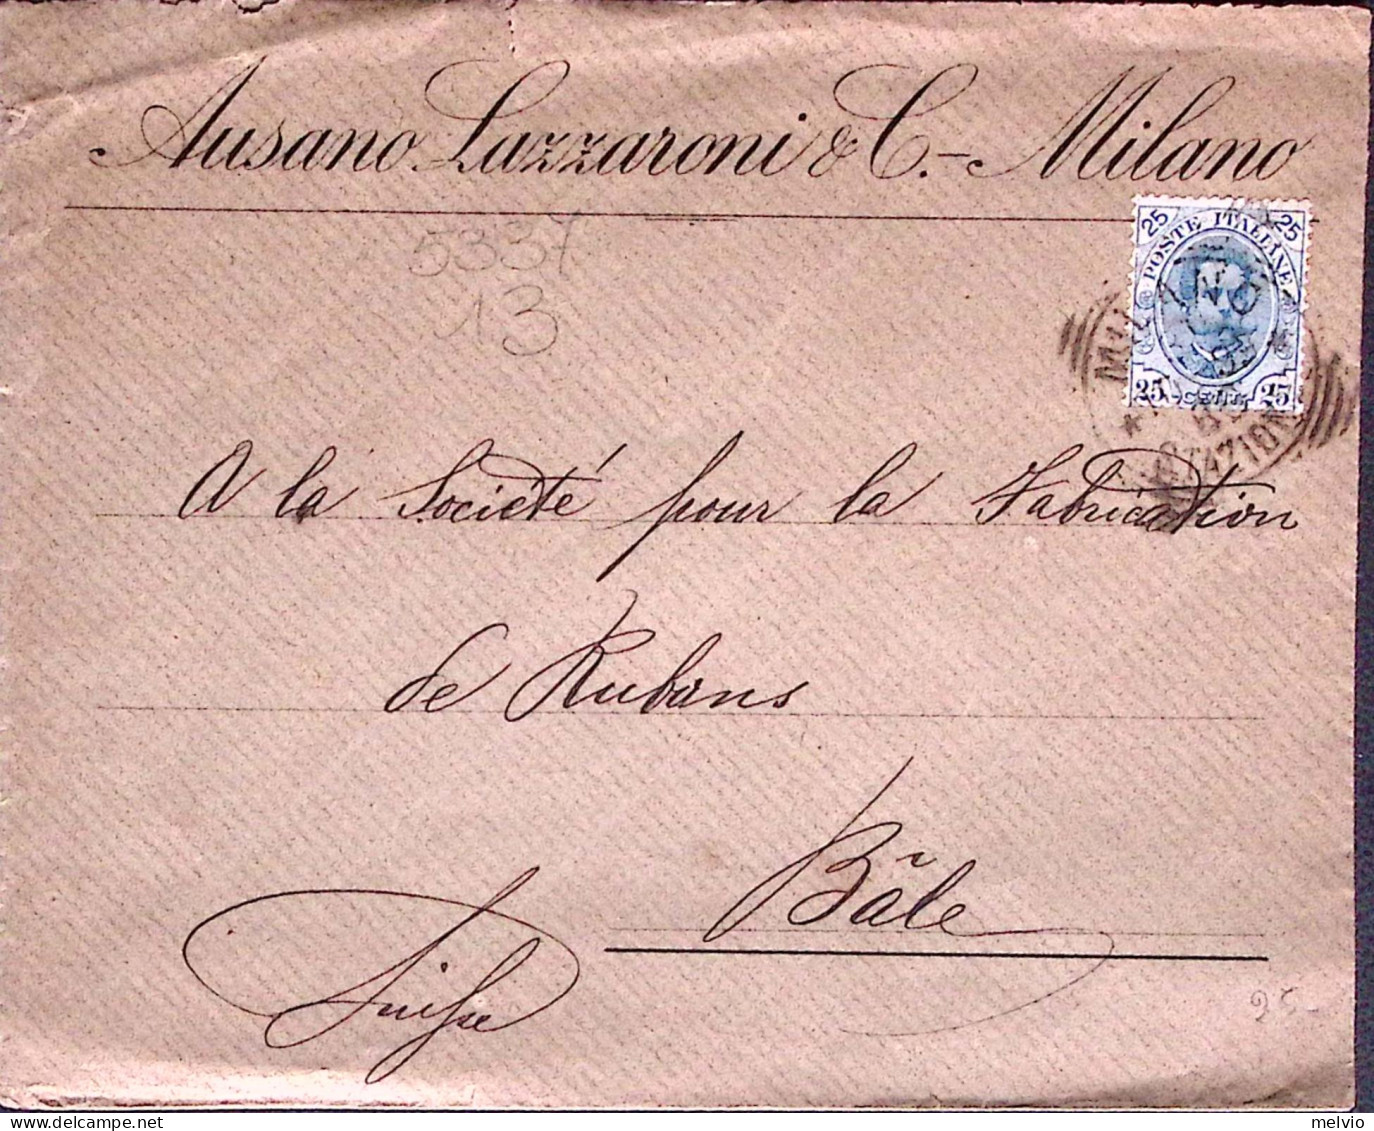 Ausano Lazzaroni & C. - Milano
5337
13
25 POSTE ITALIANE 25
25 CENT. 25
MILANO
A la Société pour la Fabrication
de Rubans
Bâle
Suisse
25-
melvio